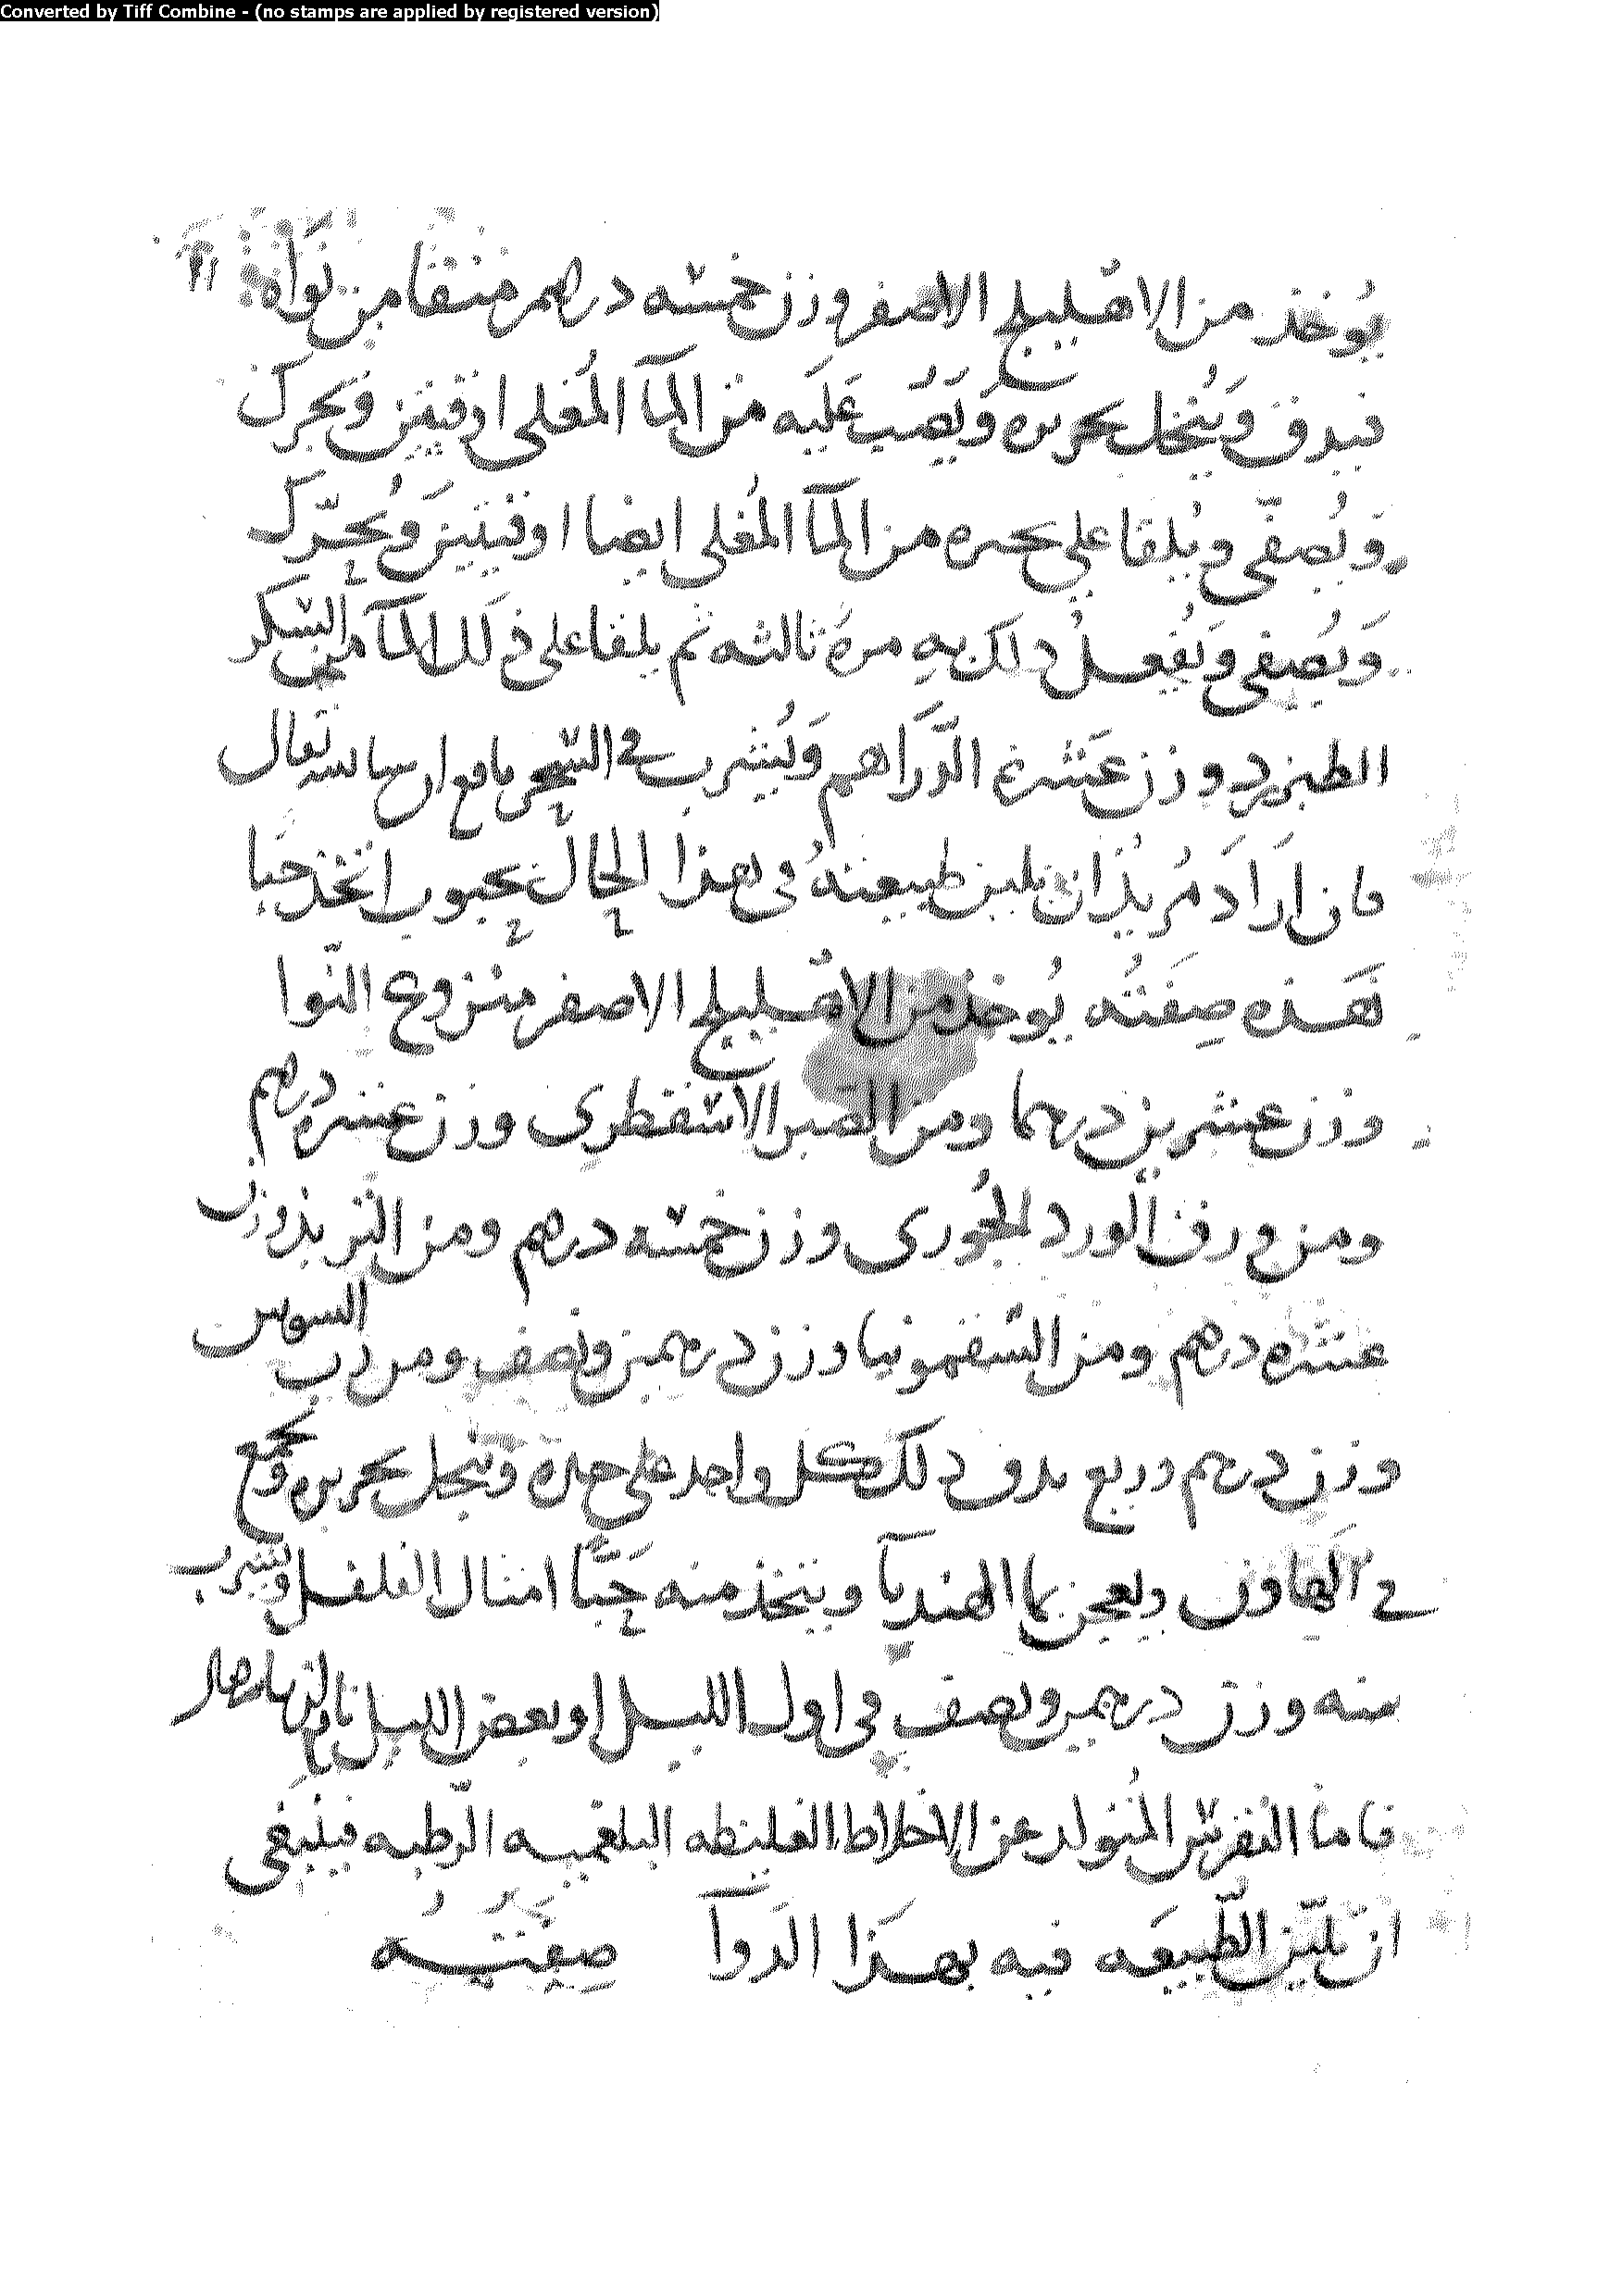 Converted by Tiff Combine - (no stamps are applied by registered version)
يُوخذ من الاهليلج الاصفر وزن خمسه درهم منقا من نواه
فيدق وَيُنخل بحريره وَيُصَب عَليَه من المآ المُغلى اوقيتين وَيُحرك
وَيُصفّى وَيُلقا على بحيره من المآ المُغلى ايضا اوقيتين وَيُحَرّك
وَيُصفى وَيُفعلُ ذلك بهِ مرة ثالثه ثم يلقا على ذلك المآ من السّكر
الطبرزد وزن عَشرة الدَّرَاهم وَيُشرب في السّحر نافع ان شا الله تعال
فان ارَادَ مُريدٌ ان يلين طبيعتهُ فى هذا الحال بحبوب اتخذ حبا
فَهَذه صِفَتُه يُوخذ من الاهليلج الاصفر منزوع النّوا
وزن عشرين درهما ومن الصبر الاسقطرى وزن عشره درهم
ومن ورق الورد الجُورى وزن خمسه درهم ومن التّربذ وزن
عشره درهم ومن السّقمونيا وزن درهمين ونصف ومن رب السوس
وزن درهم وربع يدق ذلك كل واحد على حدة وَينخل بحريره وَيجمع
في الهَاون ويعجن بما الهندبآ ويتخذ منه حَبَّا امثال الفلفل ويشرب
منه وزن درهمين ونصف في اول الليل او بعض الليل او بالنهار
فاما النقرس المُتولد عن الاخلاط الغليظه البلغميه الرّطبه فينبغى
ان تليّن الطَّبيعَه فيه بهَذا الدَوآ صِفَتُهُ